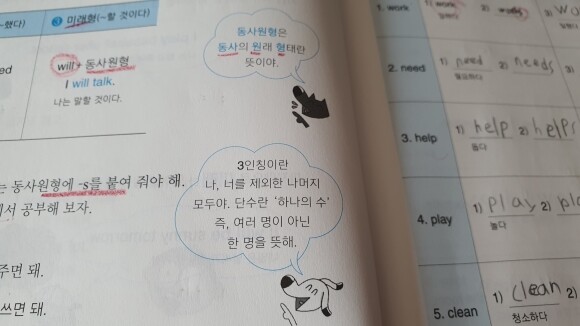 ~했다)
❸ 미래형(~할 것이다)
will + 동사원형
I will talk.
나는 말할 것이다.
동사원형은
동사의 원래 형태란
뜻이야.
는 동사원형에 -s를 붙여 줘야 해.
에서 공부해 보자.
주면 돼.
쓰면 돼.
3인칭이란
나, 너를 제외한 나머지
모두야. 단수란 '하나의 수'
즉, 여러 명이 아닌
한 명을 뜻해.
1. work 1) work 2) works
2. need 1) need 2) needs
필요하다
3. help 1) help 2) helps
돕다
4. play 1) play 2)
놀다
5. clean 1) clean 2)
청소하다